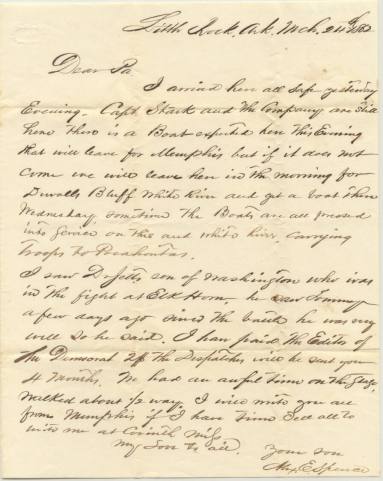 Little Rock, Ark, Mch. 24th 1862
Dear Pa
I arrived here all safe yesterday
Evening. Capt Shark and the Company are still
here there is a Boat expected here this Evening
that will leave for Memphis but if it does not
come we will leave here in the morning for
Duvalls Bluff White River and get a boat there
Wednesday sometime the Boats are all pressed
into Service on this and white river, carrying
Troops to Pocahontas.
I saw Dr Jetts son of Washington who was
in the fight at Elk Horn, he saw Tommy
a few days ago since the battle he was very
well so he said. I have paid the Editor of
the Democrat 2$ the Dispatches will be sent you
4 months. We had an awful time on the Stage,
walked about ½ way. I will write you all
from Memphis if I have time Tell all to
write me at Corinth Miss
My love to all. Your son
Alex E Spence